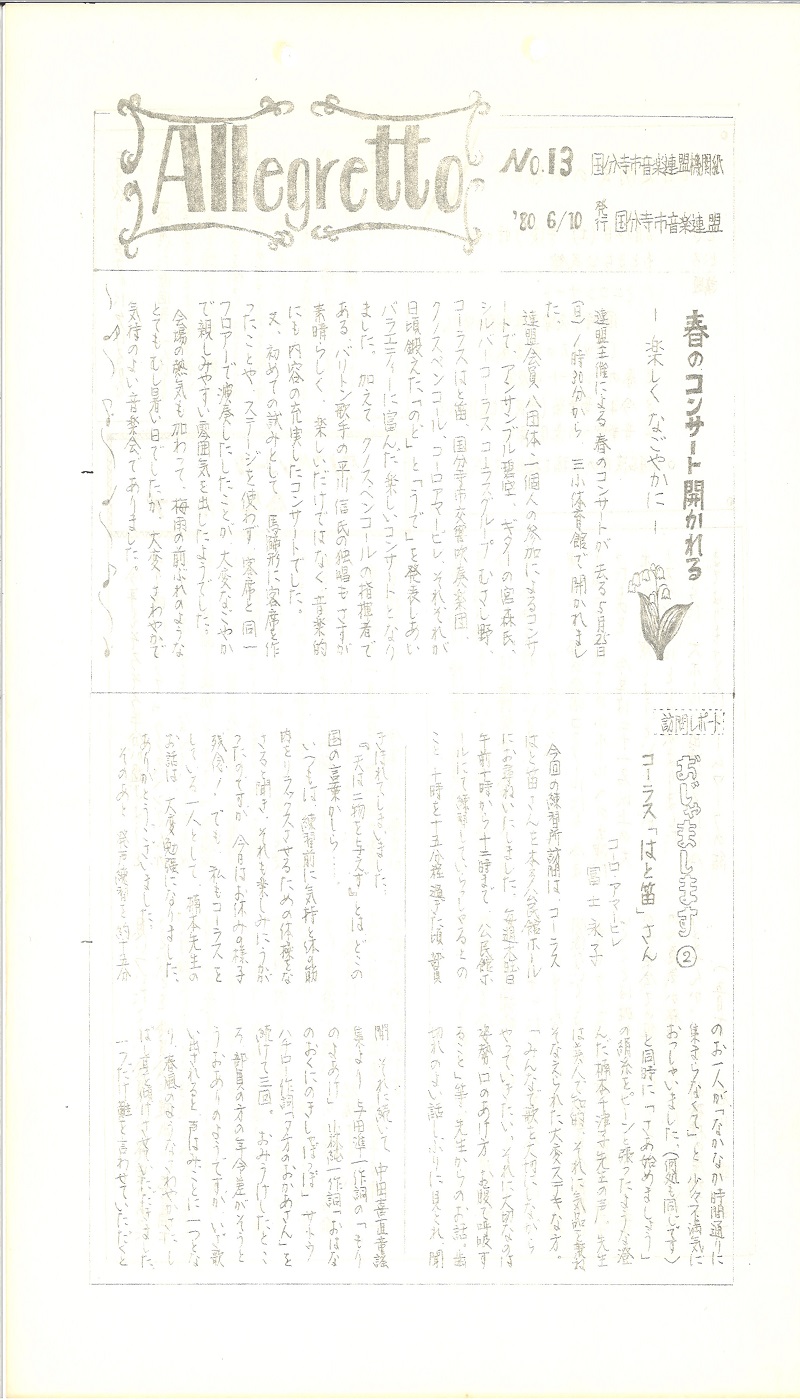 Allegretto
No.13 国分寺市音楽連盟機関紙
'80 6/10 発行 国分寺市音楽連盟
春のコンサート開かれる
ー 楽しく なごやかに ー
連盟主催による春のコンサートが 去る5月25日
(日)1時30分から 三小体育館で 開かれまし
た。
連盟会員 八団体 二個人の参加によるコンサ
ートで、アンサンブル碧空、ギターの宮森氏、
シルバーコーラス コーラスグループ むさし野、
コーラスはと笛、国分寺市交響吹奏楽団
クノスペンコール、コーロアマービレ、それぞれが
日頃鍛えた「のど」と「うで」を発表しあい
バラエティーに富んだ楽しいコンサートとなり
ました。加えて クノスペンコールの指揮者で
ある、バリトン歌手の平川信氏の独唱も さすが
素晴らしく、楽しいだけではなく、音楽的
にも内容の充実したコンサートでした。
又、初めての試みとして 馬蹄形に客席を作
ったことや、ステージを使わず 客席と同一
フロアーで演奏したしたことが 大変なごやか
で親しみやすい雰囲気を出したようでした。
会場の熱気も加わって、梅雨の前ぶれのような
とてもむし暑い日でしたが、大変、さわやかで
気持のよい音楽会でありました。
訪問レポート
おじゃまします ②
コーラス「はと笛」さん
コーロ・アマービレ
冨士永子
今回の練習所訪問は、コーラス
はと笛さんを本多公民館ホール
にお尋ねいたしました。毎週
午前十時から十二時まで、公民館ホ
ールにて練習していらっしゃるとの
こと、十時を十五分程過ぎた頃 部員
のお一人が「なかなか時間通りに
集まらなくて」と少々不満気に
おっしゃいました。(何処も同じです)
と同時に「さあ始めましょう」
の絹糸をピーンと張ったような澄
んだ 先生の声。先生
は美人で知的、それに気品を兼ね
そなえられた大変ステキな方。
「みんなで歌を大切にしながら
やっていきたい。それに大切なのは
姿勢、口のあけ方、お腹で呼吸す
ること」等、先生からのお話。歯
切れのよい話しぶりに見とれ、聞
きほれてしまいました。
『天は二物を与えず』とはどこの
国の言葉かしら…
いつもは、練習前に気持と体の筋
肉をリラックスさせるための体操をな
さると聞き、それも楽しみにうかが
ったのですが 今日はお休みの様子
残念! でも、私もコーラスを
している一人として 先生の
お話は 大変勉強になりました。
ありがとうございました。
そのあと 発声練習を約十五分
間、それに続いて 中田喜直童謡
集より 与田準一作詞の「もり
のよあけ」小林純一作詞「おはな
のおくにのきしゃぽっぽ」サトウ
ハチロー作詞「夕方のおかあさん」を
続けて三回。おみうけしたとこ
ろ 部員の方の年令差がそうと
うおありのようですが、いざ歌
い出されると、声はみごとに一つとな
り、春風のようなさわやかさに、し
ばし耳を傾けさせていただきました。
一つだけ難を言わせていただくと